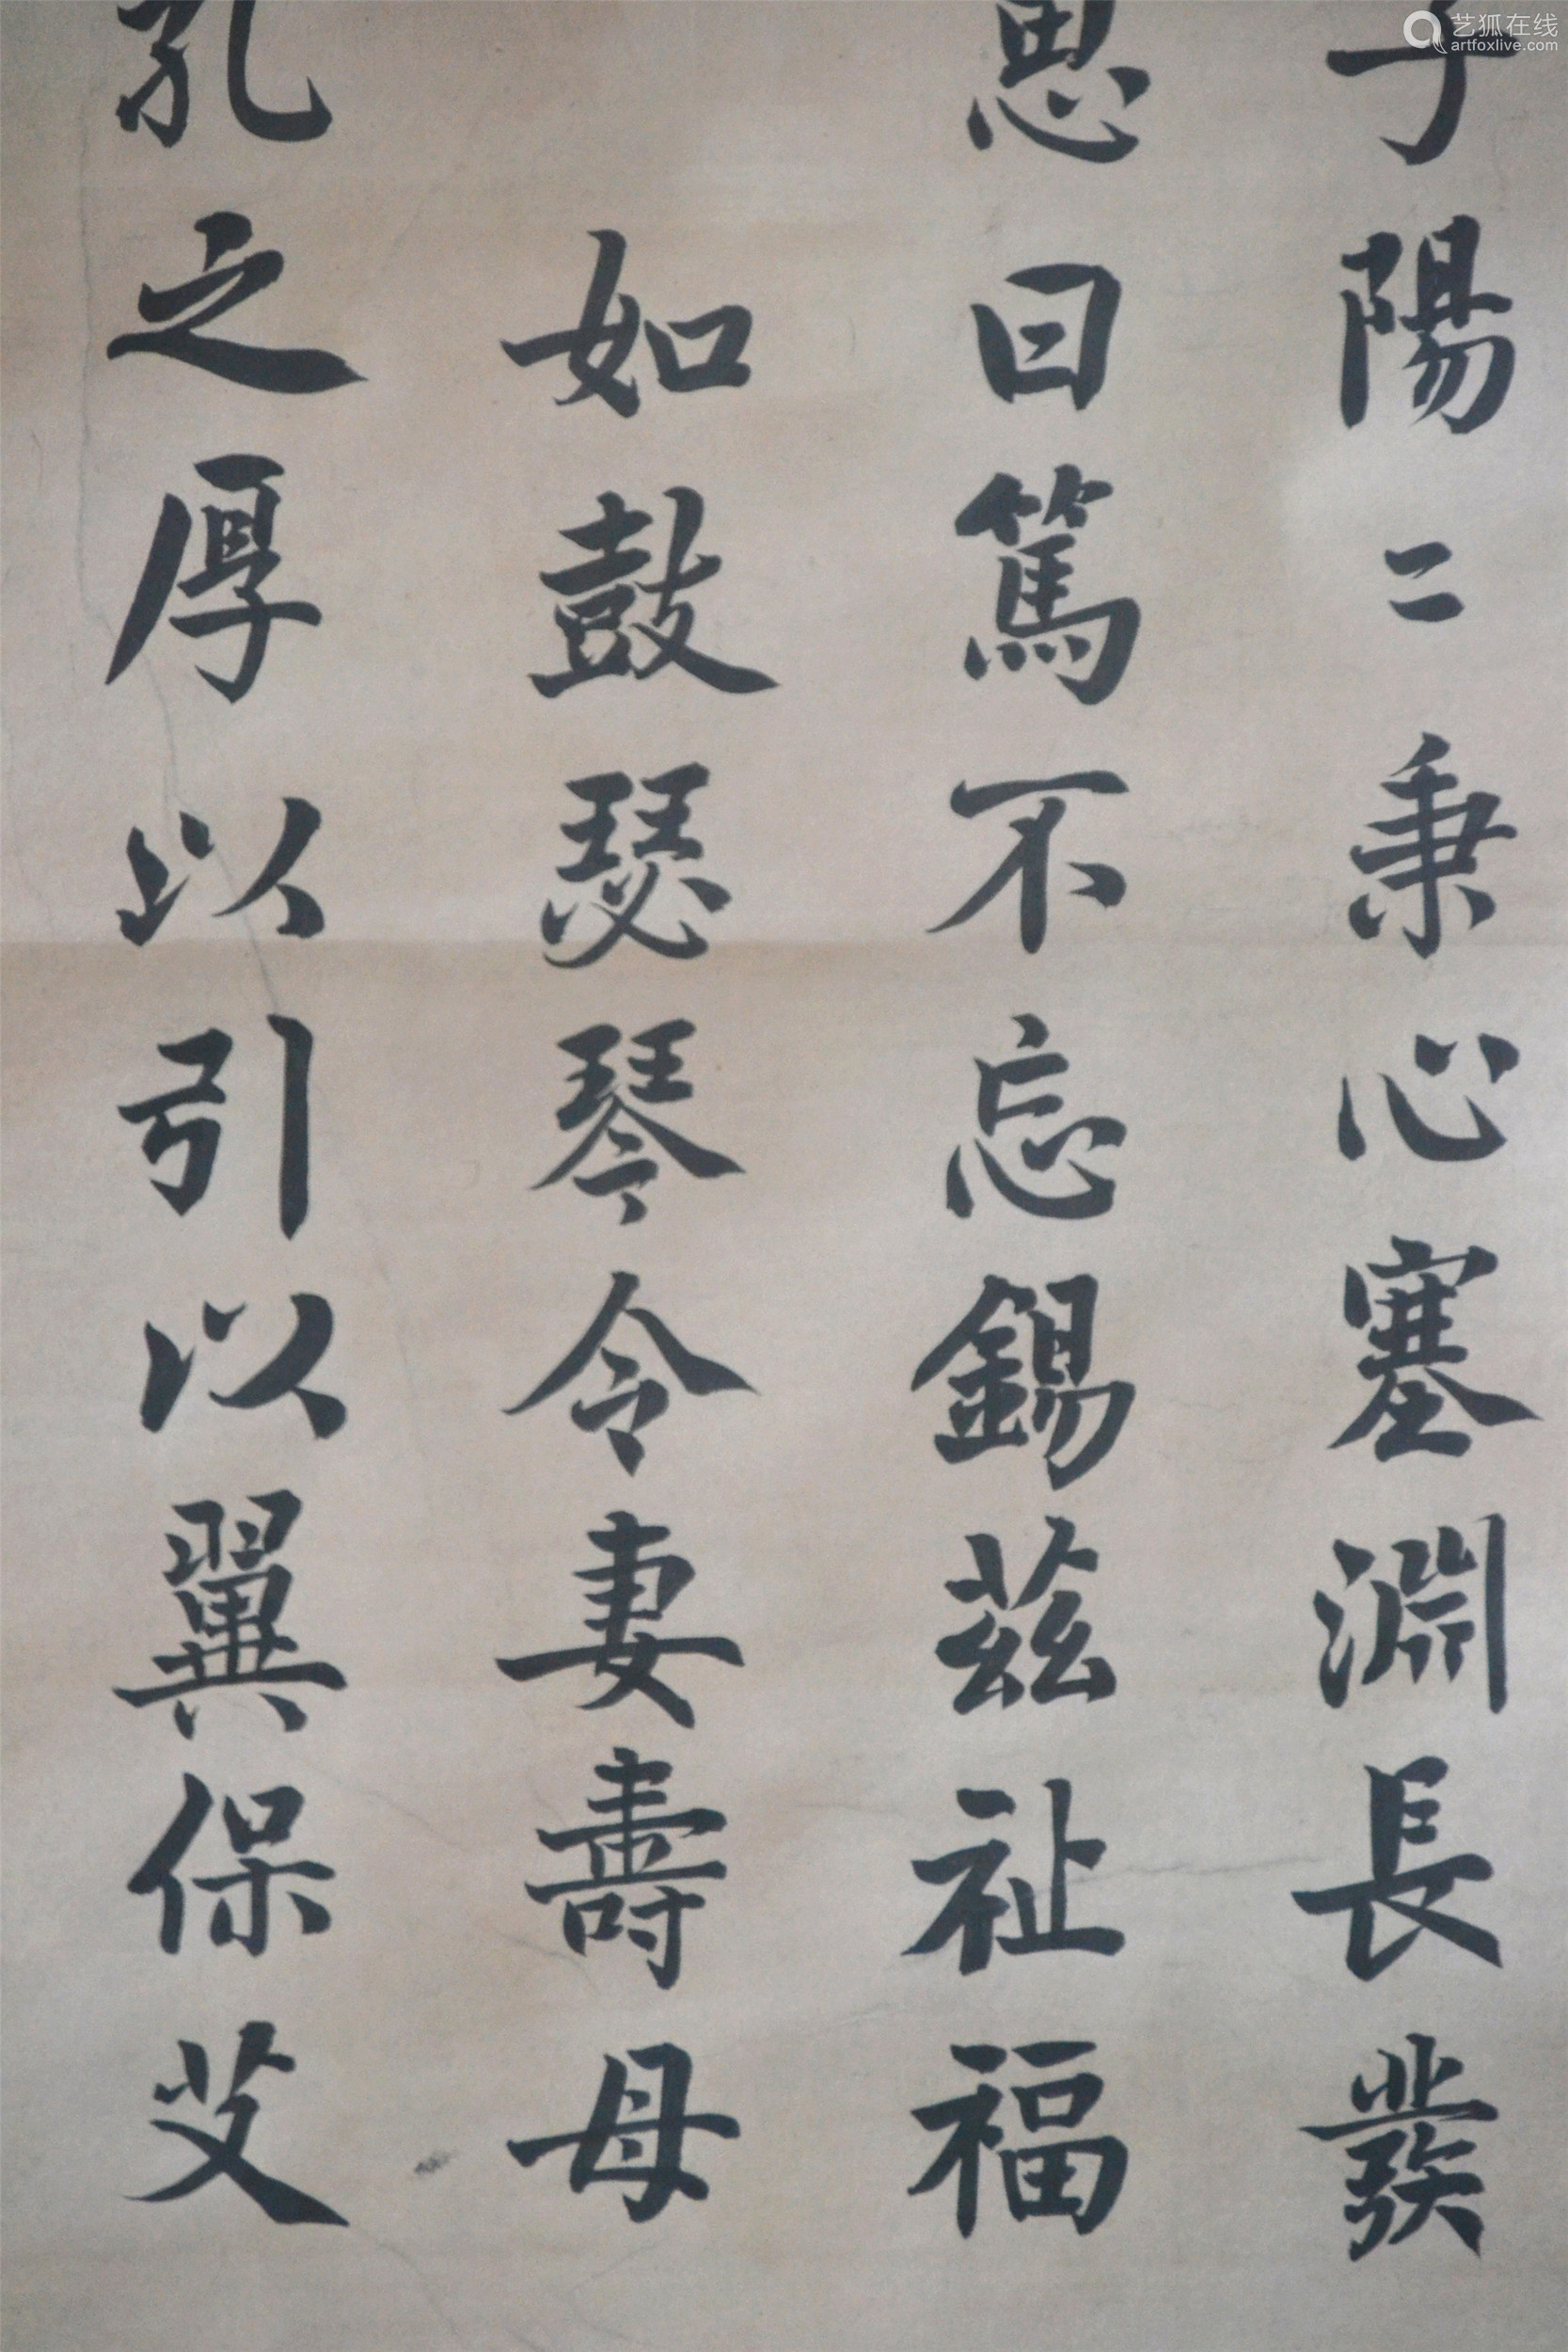 子陽〻秉心塞淵長發
思曰篤不忘錫茲祉福
如鼓瑟琴令妻壽母
孔之厚以引以翼保艾
艺狐在线
artfoxlive.com